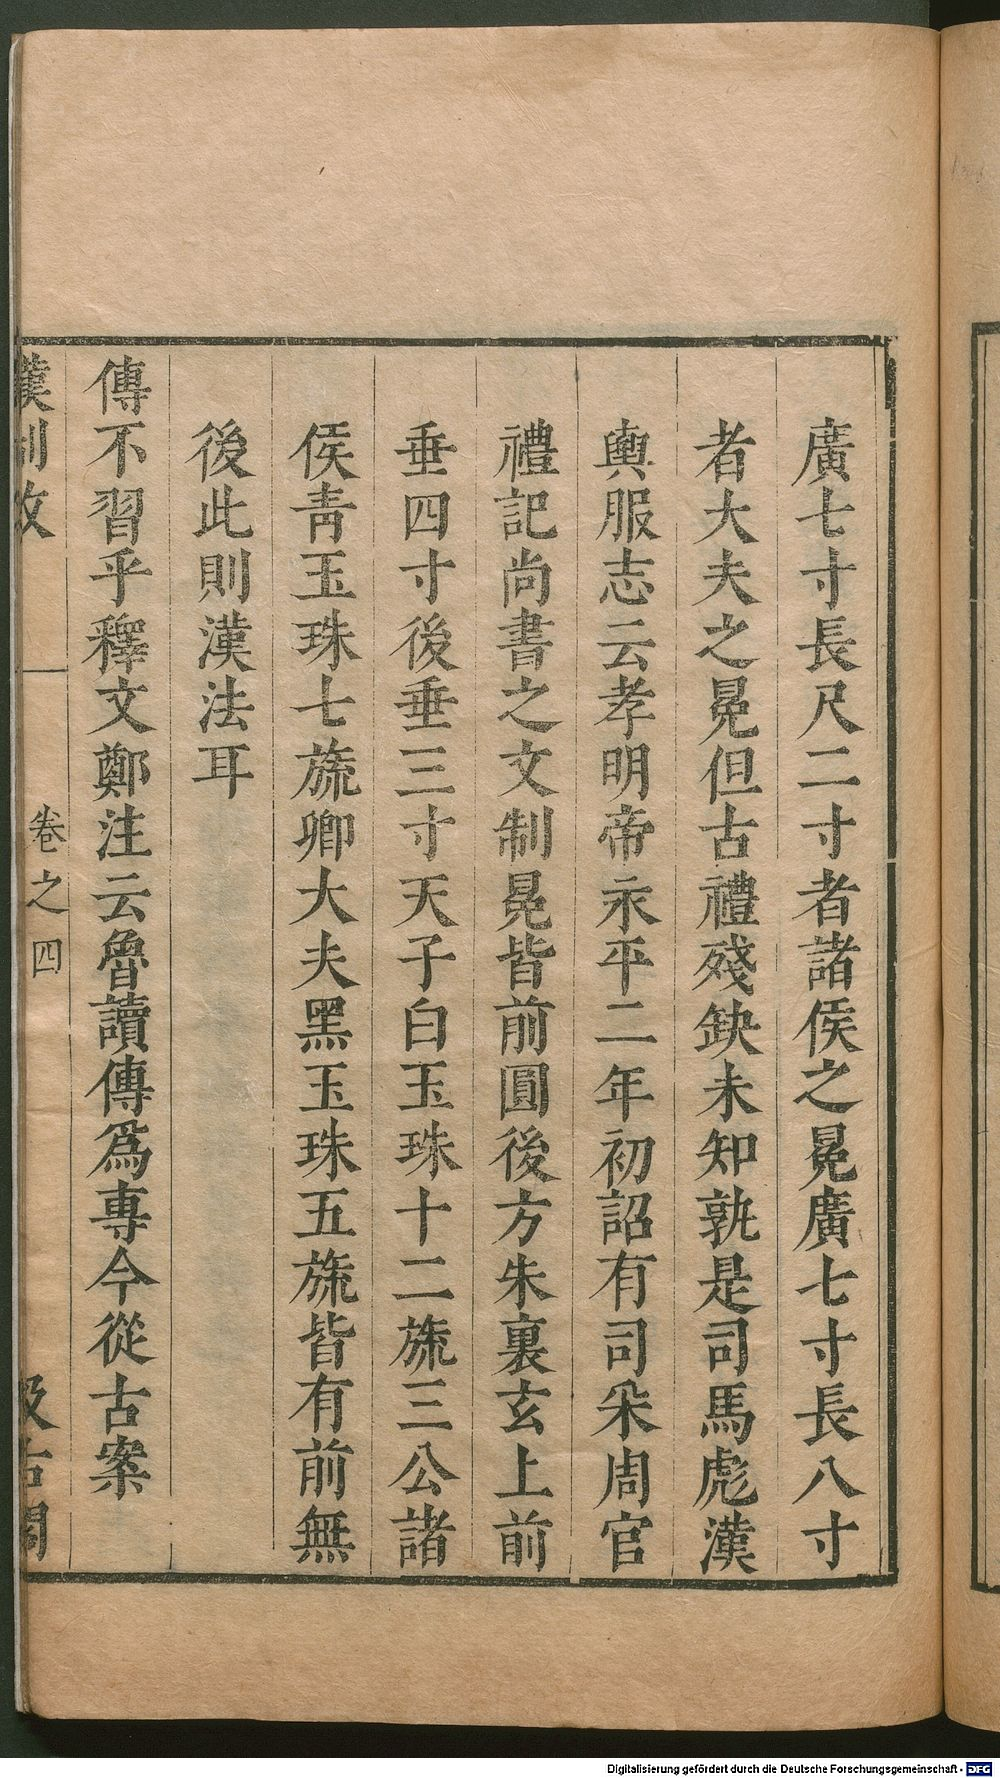 廣七寸長尺二寸者諸侯之冕廣七寸長八寸
者大夫之冕但古禮殘缺未知孰是司馬彪漢
輿服志云孝明帝永平二年初詔有司采周官
禮記尚書之文制冕皆前圓後方朱裏玄上前
垂四寸後垂三寸天子白玉珠十二旒三公諸
侯青玉珠七旒卿大夫黑玉珠五旒皆有前無
後此則漢法耳
傳不習乎釋文鄭注云魯讀傳爲專今從古案
漢制攷 卷之四 汲古閣
Digitalisierung gefördert durch die Deutsche Forschungsgemeinschaft - DFG